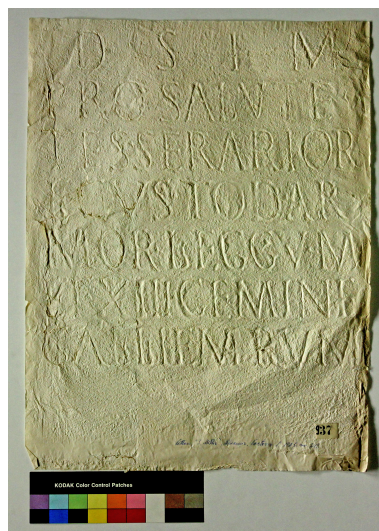 D S I M
PRO SALVTE
TESSERARIOR
CVSTOD AR
MOR LEGG V M
ET XIII GEMINE
GALLIENARVM
937
KODAK Color Control Patches